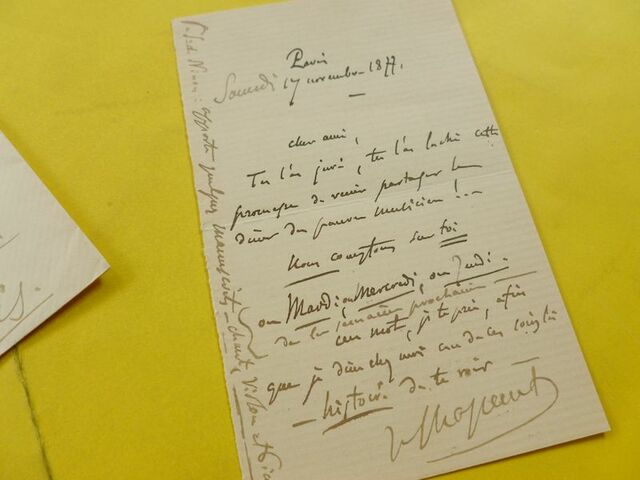 Paris
Samedi 17 novembre 1877.
cher ami,
Tu l'as juré, tu l'as cette
promesse de venir partager le
dîner du pauvre musicien! –
Nous comptons sur toi
ou Mardi, ou Mercredi, ou Jeudi –
de la semaine prochaine
un mot, je te prie, afin
que je dîne chez moi un de ces
– histoire de te voir –
J Massenet
P.S. de Ninon: apporte quelques manuscrits – chant, violon et